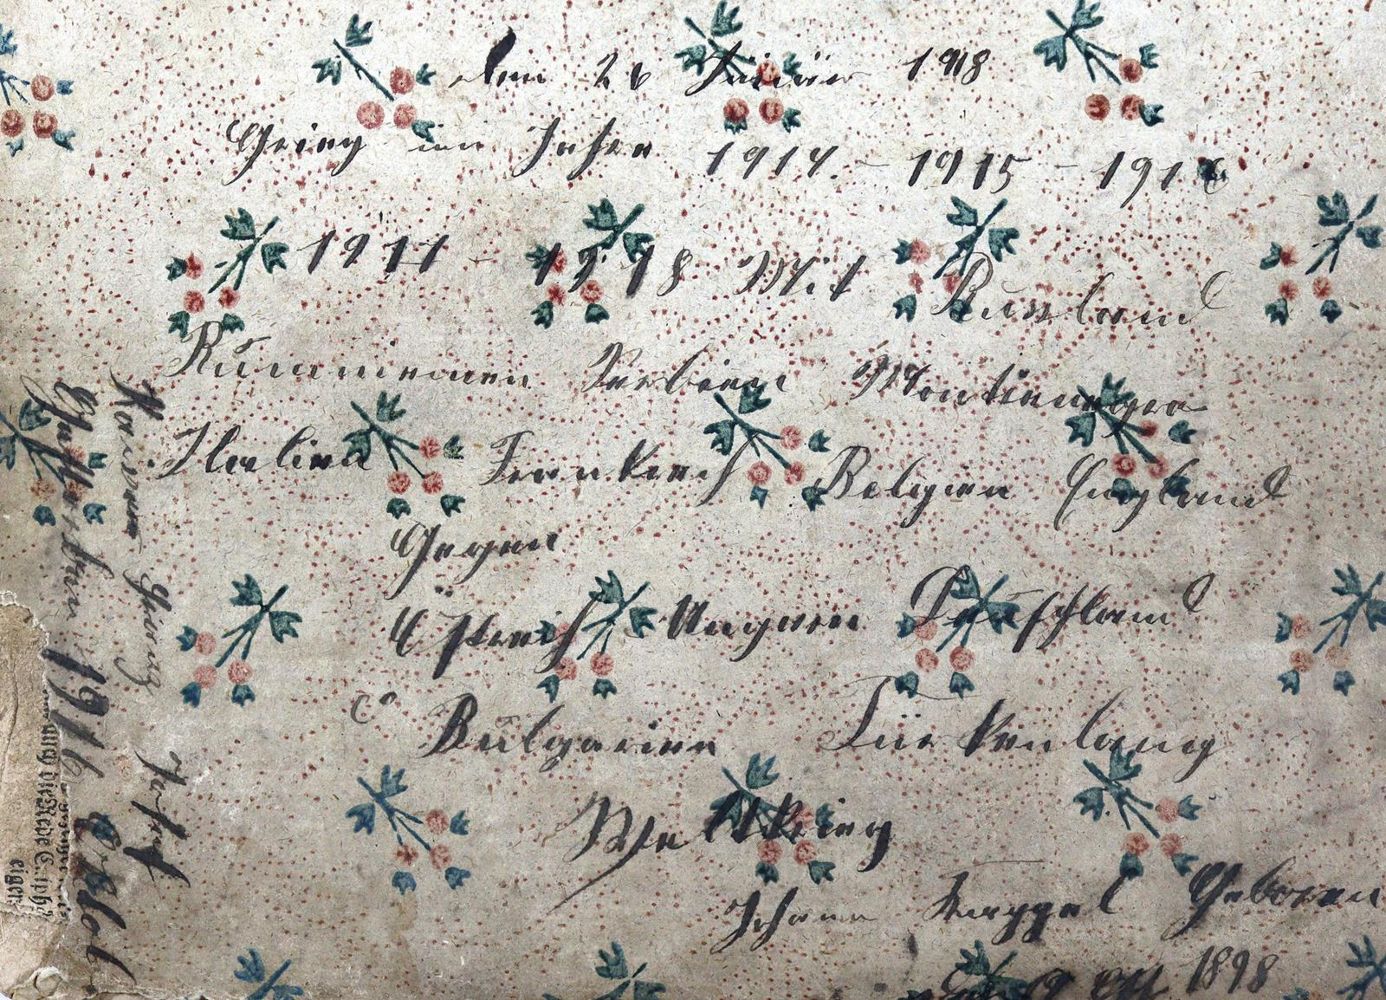 den 26 Januar 1918
Grieg im Jahre 1914 - 1915 - 1916
1917 - 1918 Mit Russland
Rumänienen Serbien Montenegro
Italien Frankreich Belgien England
Gegen
Östreich Ungarn Deutschland
Bulgarien Türkenland
Weltkrieg
Johann Geboren
1898
Kaiser Franz Josef
Gestorben 1916